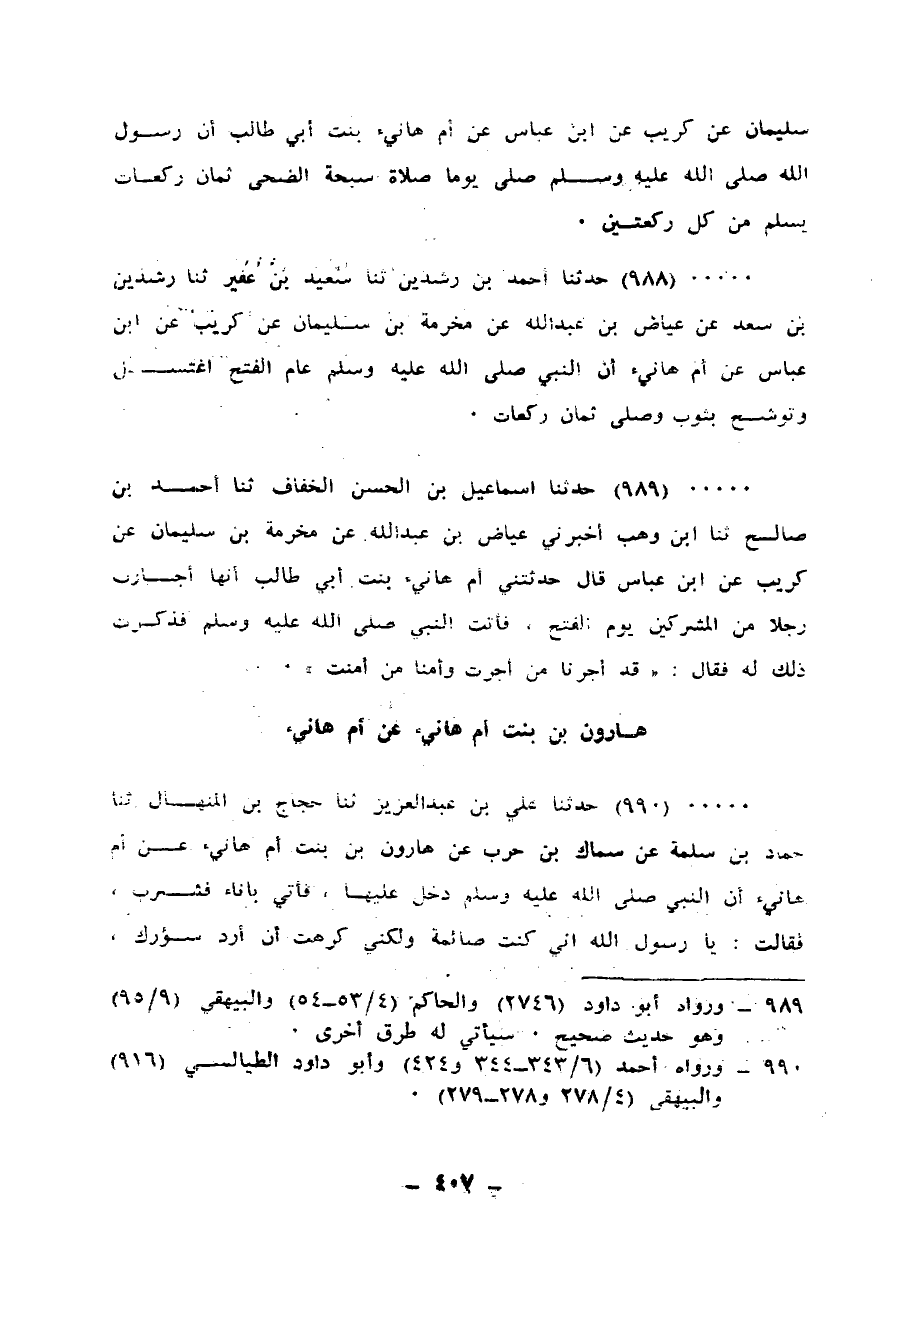 سليمان عن كريب عن ابن عباس عن أم هانيء بنت أبي طالب أن رسول
الله صلى الله عليه وسلم صلى يوما صلاة سبحة الضحى ثمان ركعات
يسلم من كل ركعتين ٠
٠٠٠٠٠ (٩٨٨) حدثنا أحمد بن رشدين ثنا سعيد بن عفير ثنا رشدين
بن سعد عن عياض بن عبدالله عن مخرمة بن سليمان عن كريب عن ابن
عباس عن أم هانيء أن النبي صلى الله عليه وسلم عام الفتح اغتسل
وتوشح بثوب وصلى ثمان ركعات ٠
٠٠٠٠٠ (٩٨٩) حدثنا اسماعيل بن الحسن الخفاف ثنا أحمد بن
صالح ثنا ابن وهب أخبرني عياض بن عبدالله عن مخرمة بن سليمان عن
كريب عن ابن عباس قال حدثتني أم هانيء بنت أبي طالب أنها أجارت
رجلا من المشركين يوم الفتح ، فأتت النبي صلى الله عليه وسلم فذكرت
ذلك له فقال : « قد أجرنا من أجرت وأمنا من أمنت » ٠
هارون بن بنت أم هانيء عن أم هانيء
٠٠٠٠٠ (٩٩٠) حدثنا علي بن عبدالعزيز ثنا حجاج بن المنهال ثنا
حماد بن سلمة عن سماك بن حرب عن هارون بن بنت أم هانيء عن أم
هانيء أن النبي صلى الله عليه وسلم دخل عليها ، فأتي باناء فشرب ،
فقالت : يا رسول الله اني كنت صائمة ولكني كرهت أن أرد سؤرك ،
٩٨٩ ــ ورواه أبو داود (٢٧٤٦) والحاكم (٥٣/٤ــ٥٤) والبيهقي (٩٥/٩)
وهو حديث صحيح ٠ سيأتي له طرق أخرى ٠
٩٩٠ ــ ورواه أحمد (٣٤٣/٦ــ٣٤٤ و٤٢٤) وأبو داود الطيالسي (٩١٦)
والبيهقي (٢٧٨/٤ و٢٧٨ــ٢٧٩) ٠
ــ ٤٠٧ ــ